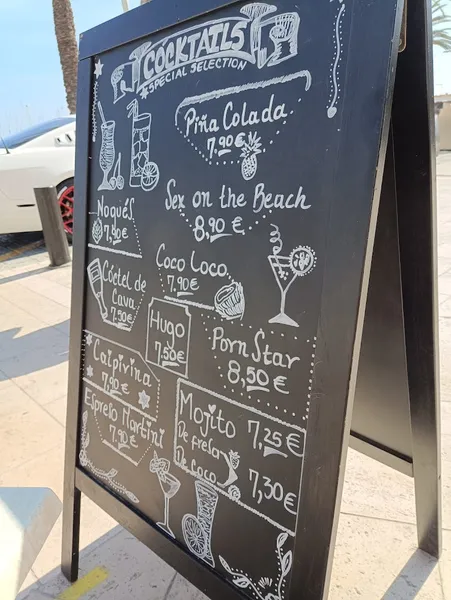 COCKTAILS
SPECIAL SELECTION
Piña Colada
7.90 €
Sex on the Beach
8,90 €
Noqués
7,90 €
Coco Loco
7.90€
Cóctel de
Cava
7.50€
Hugo
7.50€
Porn Star
8,50 €
Caipirina
7,90 €
Espreso Martini
7.90€
Mojito 7,25 €
De fresa
De Coco 7,30€